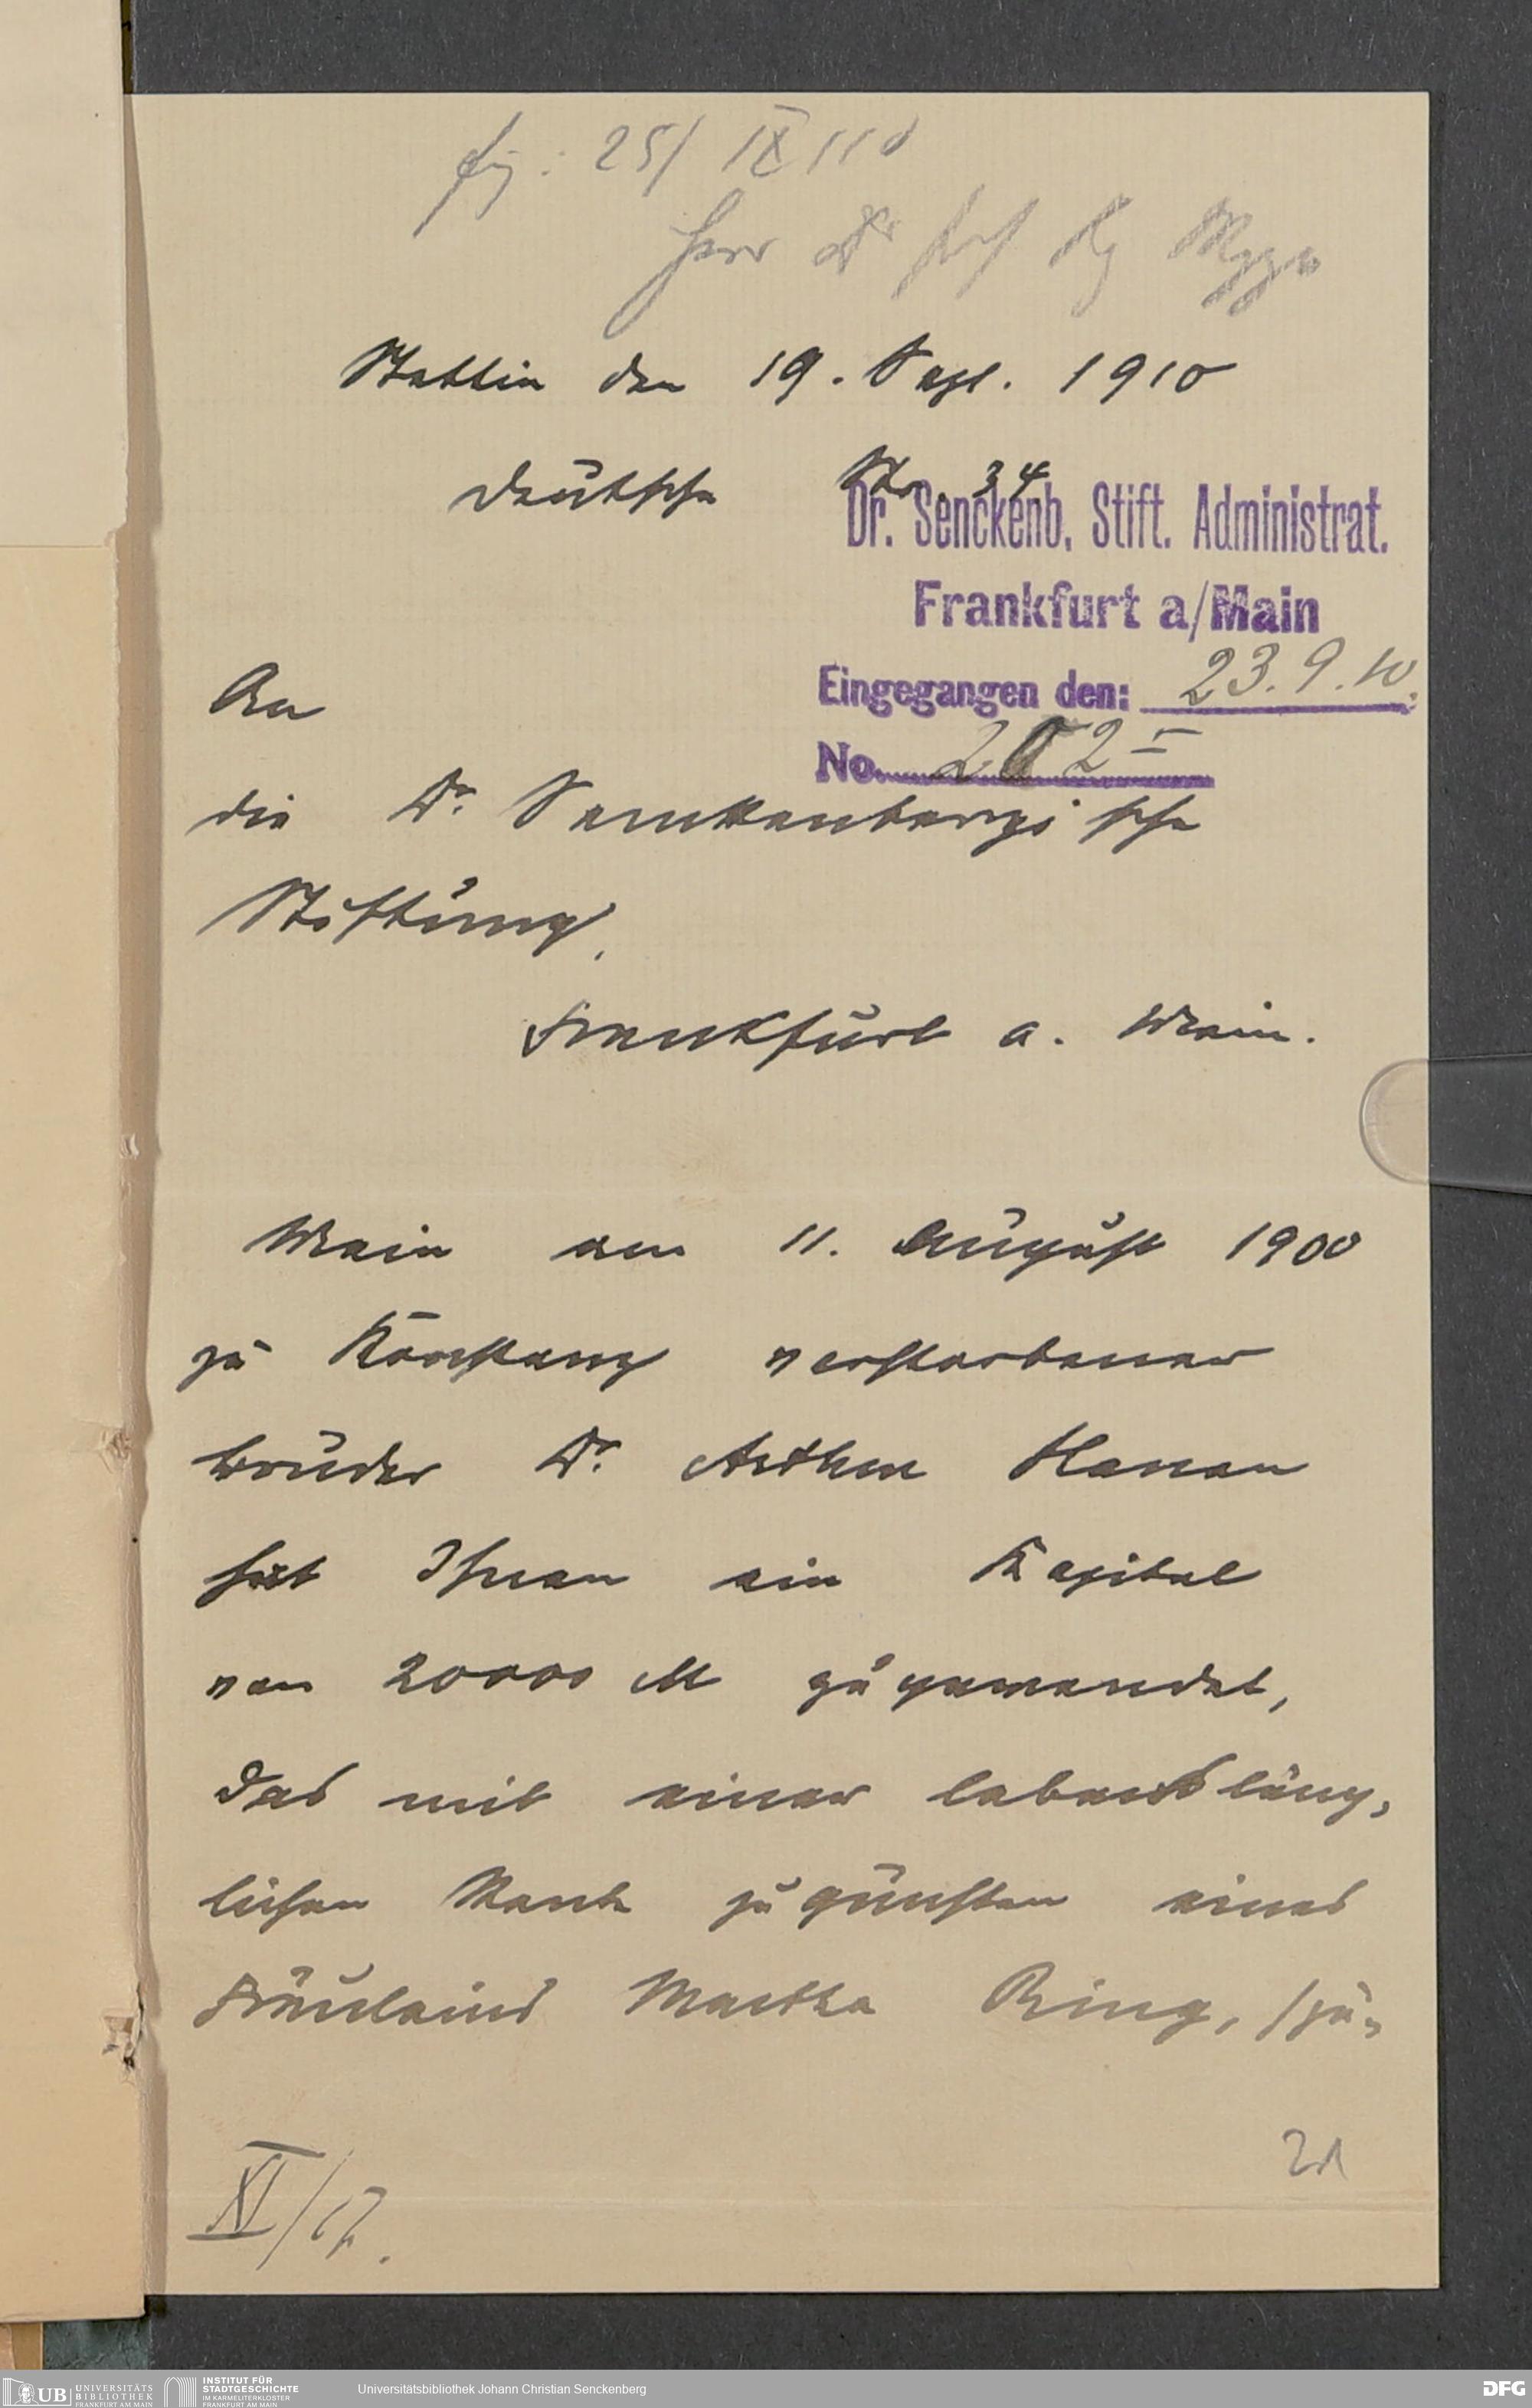 25/IX 110
Herr Dr
Stettin den 19. Sept. 1910
Deutsche Str. 34
Dr. Senckenb. Stift. Administrat.
Frankfurt a/Main
Eingegangen den: 23.9.10.
No. 202 I
An
die Dr. Senckenbergische
Stiftung,
Frankfurt a. Main.
Mein am 11. August 1900
zu Konstanz verstorbener
Bruder Dr. Arthur Hanau
hat Ihnen ein Kapital
von 20000 M zugewendet,
das mit einer lebensläng-
lichen Rente zu gunsten eines
Fräuleins Martha Ring, /zu-
21
XI/17.
UB UNIVERSITÄTS
BIBLIOTHEK
FRANKFURT AM MAIN
INSTITUT FÜR
STADTGESCHICHTE
IM KARMELITERKLOSTER
FRANKFURT AM MAIN
Universitätsbibliothek Johann Christian Senckenberg
DFG